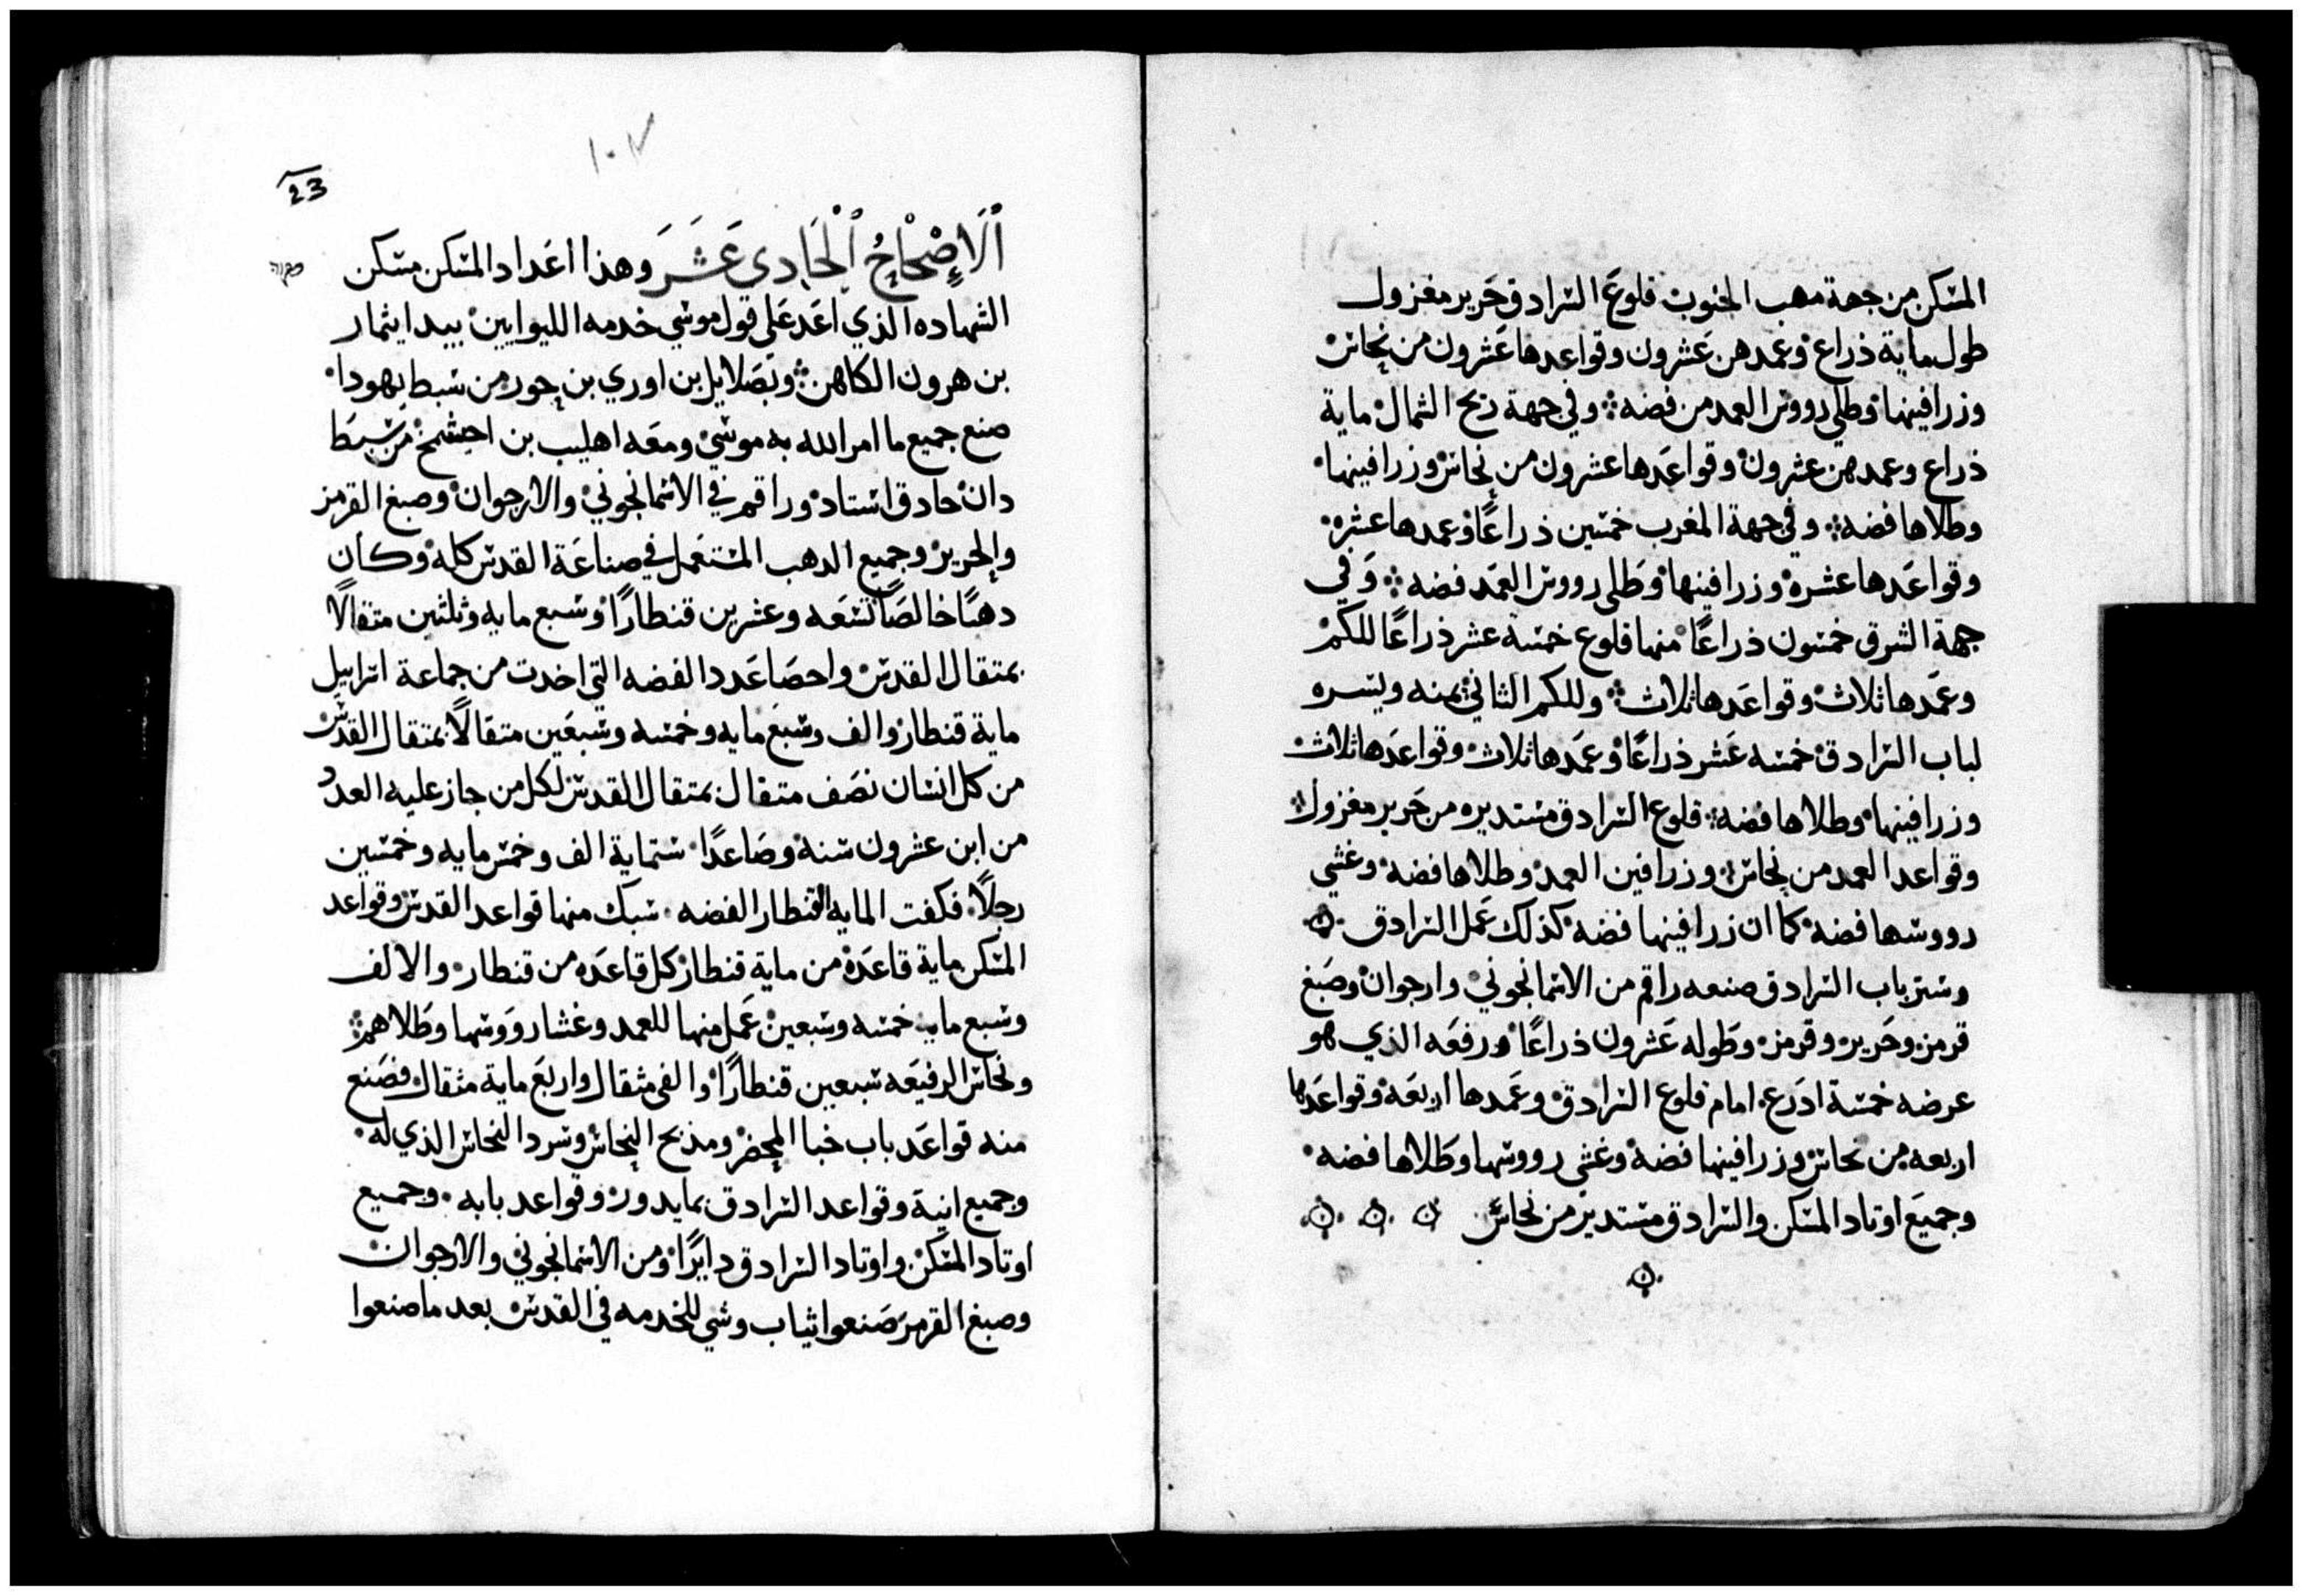 المسكن من جهة مهب الجنوب قلوع السرادق حَرير مغزول
طول ماية ذراع وعمدهن عَشرون وقواعدها عَشرون من نحاس
وزرافينها وطلي رووس العمد من فضه ⁘ وفي جهة ريح الشمال ماية
ذراع وعمدهن عشرون وقواعَدها عشرون من نحاس وزرافينها
وطلاها فضه ⁘ وفي جهة المغرب خمسين ذراعًا وعمدها عشره
وقواعَدها عشره وزرافينها وطَلى رووس العمَد فضه ⁘ وَفي
جهة الشرق خمسون ذراعًا منها قلوع خمسة عشر ذراعًا للكم
وعمَدها ثلاث وقواعَدها ثلاث ⁘ وللكم الثاني يمنه ويسره
لباب السرادق خمسه عَشر ذراعًا وعمَدها ثلاث وقواعَدها ثلاث
وزرافينها وطلاها فضه ⁘ قلوع السرادق مستديره من حَرير مغزول
وقواعد العمد من نحاس وزرافين العمد وطلاها فضه وغشي
رووسها فضه كما ان زرافينها فضه كذلك عَمل السرادق
وستر باب السرادق صنعه راقم من الاسمانجوني وارجوان وصَبغ
قرمز وحَرير وقرمز وطَوله عَشرون ذراعًا ورفعَه الذي هو
عرضه خمسة ادَرع امام قلوع السرادق وعمَدها اربعَه وقواعَدها
اربعه من نحاس وزرافينها فضه وغشى رووسها وطَلاها فضه
وجميعَ اوتاد المسكن والسرادق مستدير من نحاس
23
١٠٧
اَلَإصْحَاحُ اَلْحَادِى عَشَرَ وهذا اعَداد المسكن مسكن
الشهاده الذي اعَد عَلى قول موسي خدمه الليوايين بيد ايثمار
بن هرون الكاهن ⁘ وبصَلايل بن اوري بن حور من سبط يهودا
صنع جميع ما امر الله به موسي ومعَه اهليب بن احيسمخ من سبط
دان حادق استاد وراقم في الاسمانجوني والارجوان وصبغ القرمز
والحرير وجميع الدهب المستعَمل في صناعَة القدس كله وكان
دهبًا خالصًا تسعَه وعشرين قنطارًا وسبع مايه وثلثين متقالًا
بمتقال القدس واحصَا عَدد الفضه التي اخدت من جماعة اسراييل
ماية قنطار والف وسبعَ مايه وخمسه وسبعَين متقالًا بمتقال القدس
من كل انسان نصَف متقال بمتقال القدس لكل من جاز عليه العدد
من ابن عشرون سنه وصَاعدًا ستماية الف وخمس مايه وخمسين
رجلًا فكفت المايه القنطار الفضه سبك منها قواعد القدس وقواعد
المسكن ماية قاعَدة من ماية قنطار كل قاعَده من قنطار والالف
وسبع مايه خمسه وسَبعين عَمل منها للعمد وغشا رووسها وطَلاهم ⁘
ونحاس الرفيعَه سبعين قنطارًا والفى مثقال واربعَ ماية مثقال فصَنع
منه قواعَد باب خبا المحضر ومذبح النحاس وسرد النحاس الذي له
وجميع انية وقواعد السرادق بما يدور وقواعد بابه وجميع
اوتاد المسكن واوتاد السرادق دايرًا ومن الاسمانجوني والارجوان
وصبغ القرمز صَنعوا ثياب وشي للخدمه في القدس بعد ما صنعوا